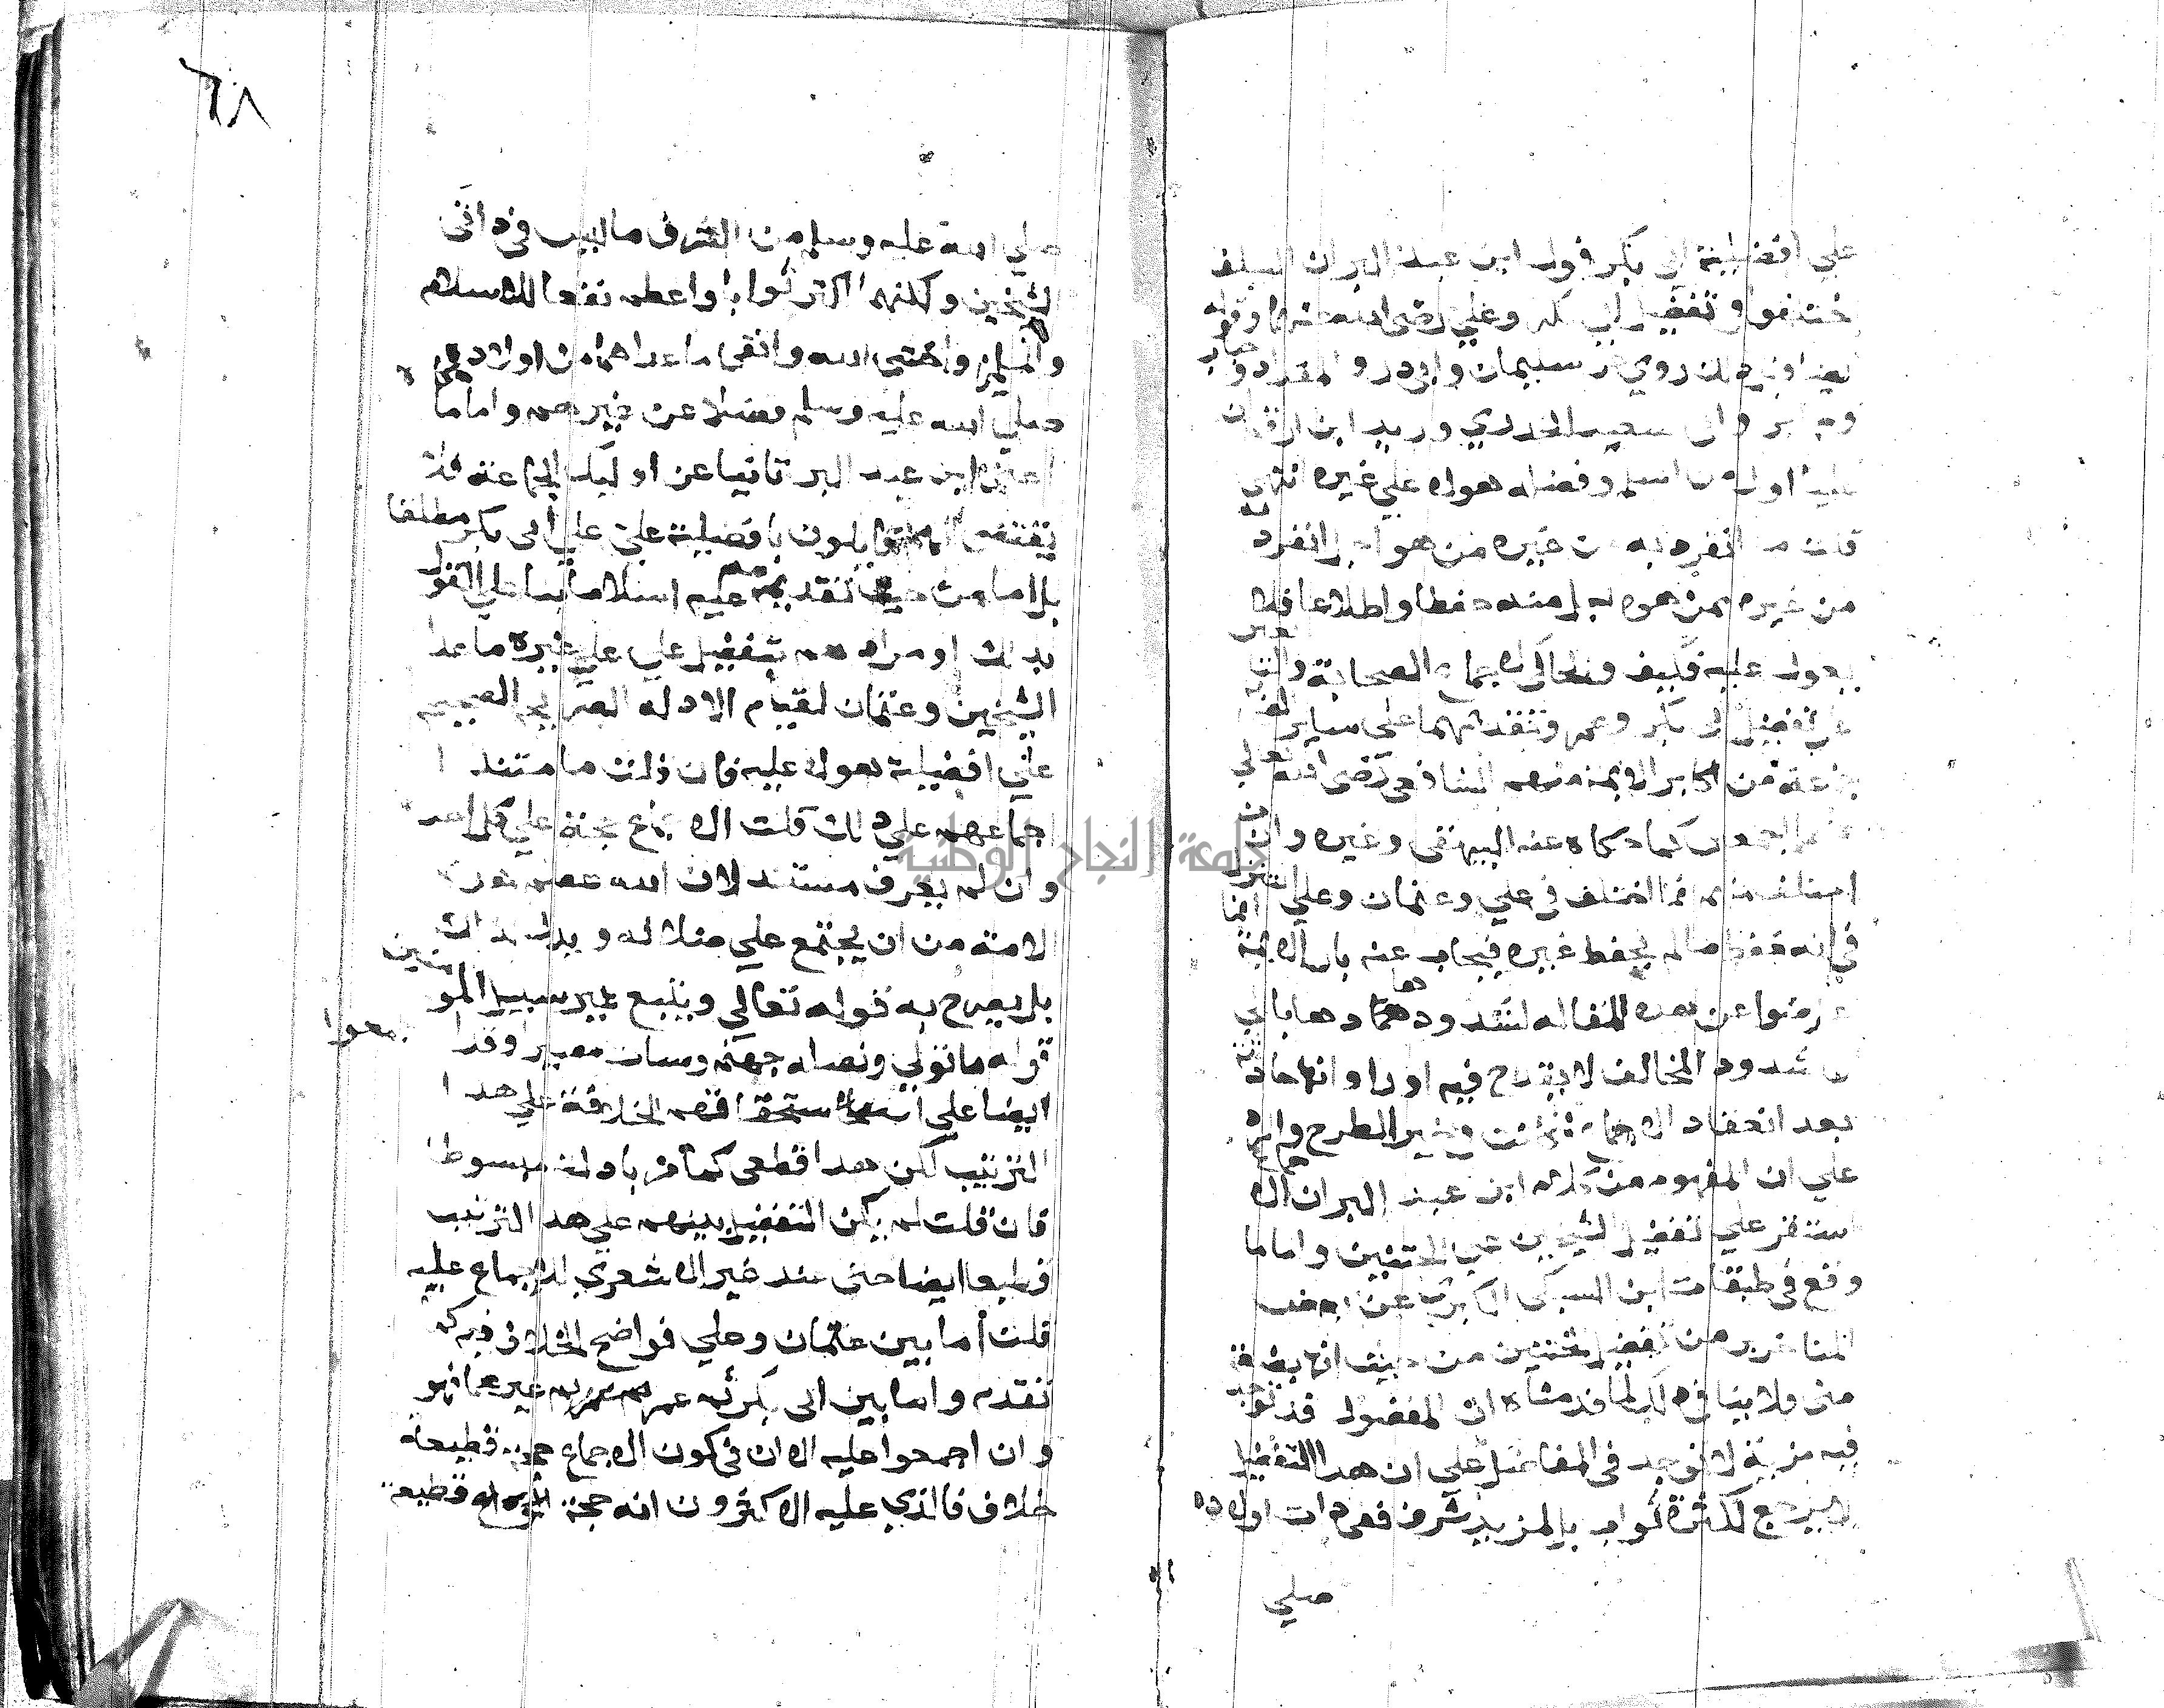 علي افضلية ابي بكر قول ابن عبد البر ان السلف
اختلفوا في تفضيل ابي بكر وعلي رضي الله عنهما وقوله
ايضا قبل ذلك روي عن سليمان وابي ذر والمقداد وخباب
وجابر وابي سعيد الخدري وزيد ابن ارقم ان
عليا اول من اسلم وفضله هولاء علي غيره انتهي
قلت ما انفرد به عن غيره من هو اجل انفرد
من غيره ممن هو اجل منه حفظا واطلاعا فلا
يعول عليه فكيف والحاكي لاجماع الصحابة والتابعين
علي تفضيل ابي بكر وعمر وتقديمهما علي ساير
جماعة من اكابر الايمة منهم الشافعي رضي الله تعالي
كما حكاه عنه البيهقي وغيره وان من
اختلف منهم انما اختلف في علي وعثمان وعلي التنزل
في انه حفظ ما لم يحفظ غيره فيجاب عنه بان الايمة
اعرضوا عن هذه المقاله لشدودها دهابا الي
ان شدود المخالف لا يقدح فيه او راوا انها حادثة
بعد انعقاد الاجماع فكانت في حيز الطرح والرد
علي ان المفهوم من كلام ابن عبد البر ان الاجماع
استقر علي تفضيل الشيخين علي الختنين واما ما
وقع في طبقات ابن السبكي الكبري عن بعض
المتاخرين من تفضيل الختنين من حيث انهما بضعة
مني فلا ينافي ذلك لما قدمناه ان المفضول قد توجد
فيه مزية لا توجد في الفاضل علي ان هدا التفضيل
لا يرجع لكثرة الثواب بل لمزيد شرف ففي دات اولاده
صلي
٦٨
صلي الله عليه وسلم من الشرف ما ليس في دات
الشيخين ولكنهما اكثر ثوابا واعظم نفعا للاسلام
والمسلمين واخشي لله واتقي ما عداهما من اولاده
صلي الله عليه وسلم فضلا عن غيرهم واما ما
ابن عبد البر ثانيا عن اوليك الجماعة فلا
يقتضي انهم قايلون بافضلية علي علي ابي بكر مطلقا
بل اما من حيث تقدمه عليهم اسلاما بنا علي القول
بدلك او مرادهم بتفضيل علي علي غيره ما عدا
الشيخين وعثمان لقيام الادله الصريحه الصحيحه
علي افضلية هولاء عليه فان قلت ما مستند
اجماعهم علي دلك قلت الاجماع حجة علي كل احد
وان لم يعرف مستنده لان الله عصم هذه
الامة من ان يجتمع علي ضلاله ويدل لدلك
بل يصرح به قوله تعالي ويتبع غير سبيل المومنين
نوله ما تولي ونصله جهنم وساءت مصيرا وقد اجمعوا
ايضا علي استحقاقهم الخلافة علي هدا
الترتيب لكن هدا قطعي كما مر بادلته مبسوطا
فان قلت لم يكن التفضيل بينهم علي هدا الترتيب
قطعيا ايضا حتي عند غير الاشعري للاجماع عليه
قلت أما بين عثمان وعلي فواضح للخلاف فيه كما
تقدم واما بين ابي بكر ثم عمر ثم غيرهما فهو
وان اجمعوا عليه الا ان في كون الاجماع حجة قطعية
خلاف فالذي عليه الاكثرون انه حجة قطعية